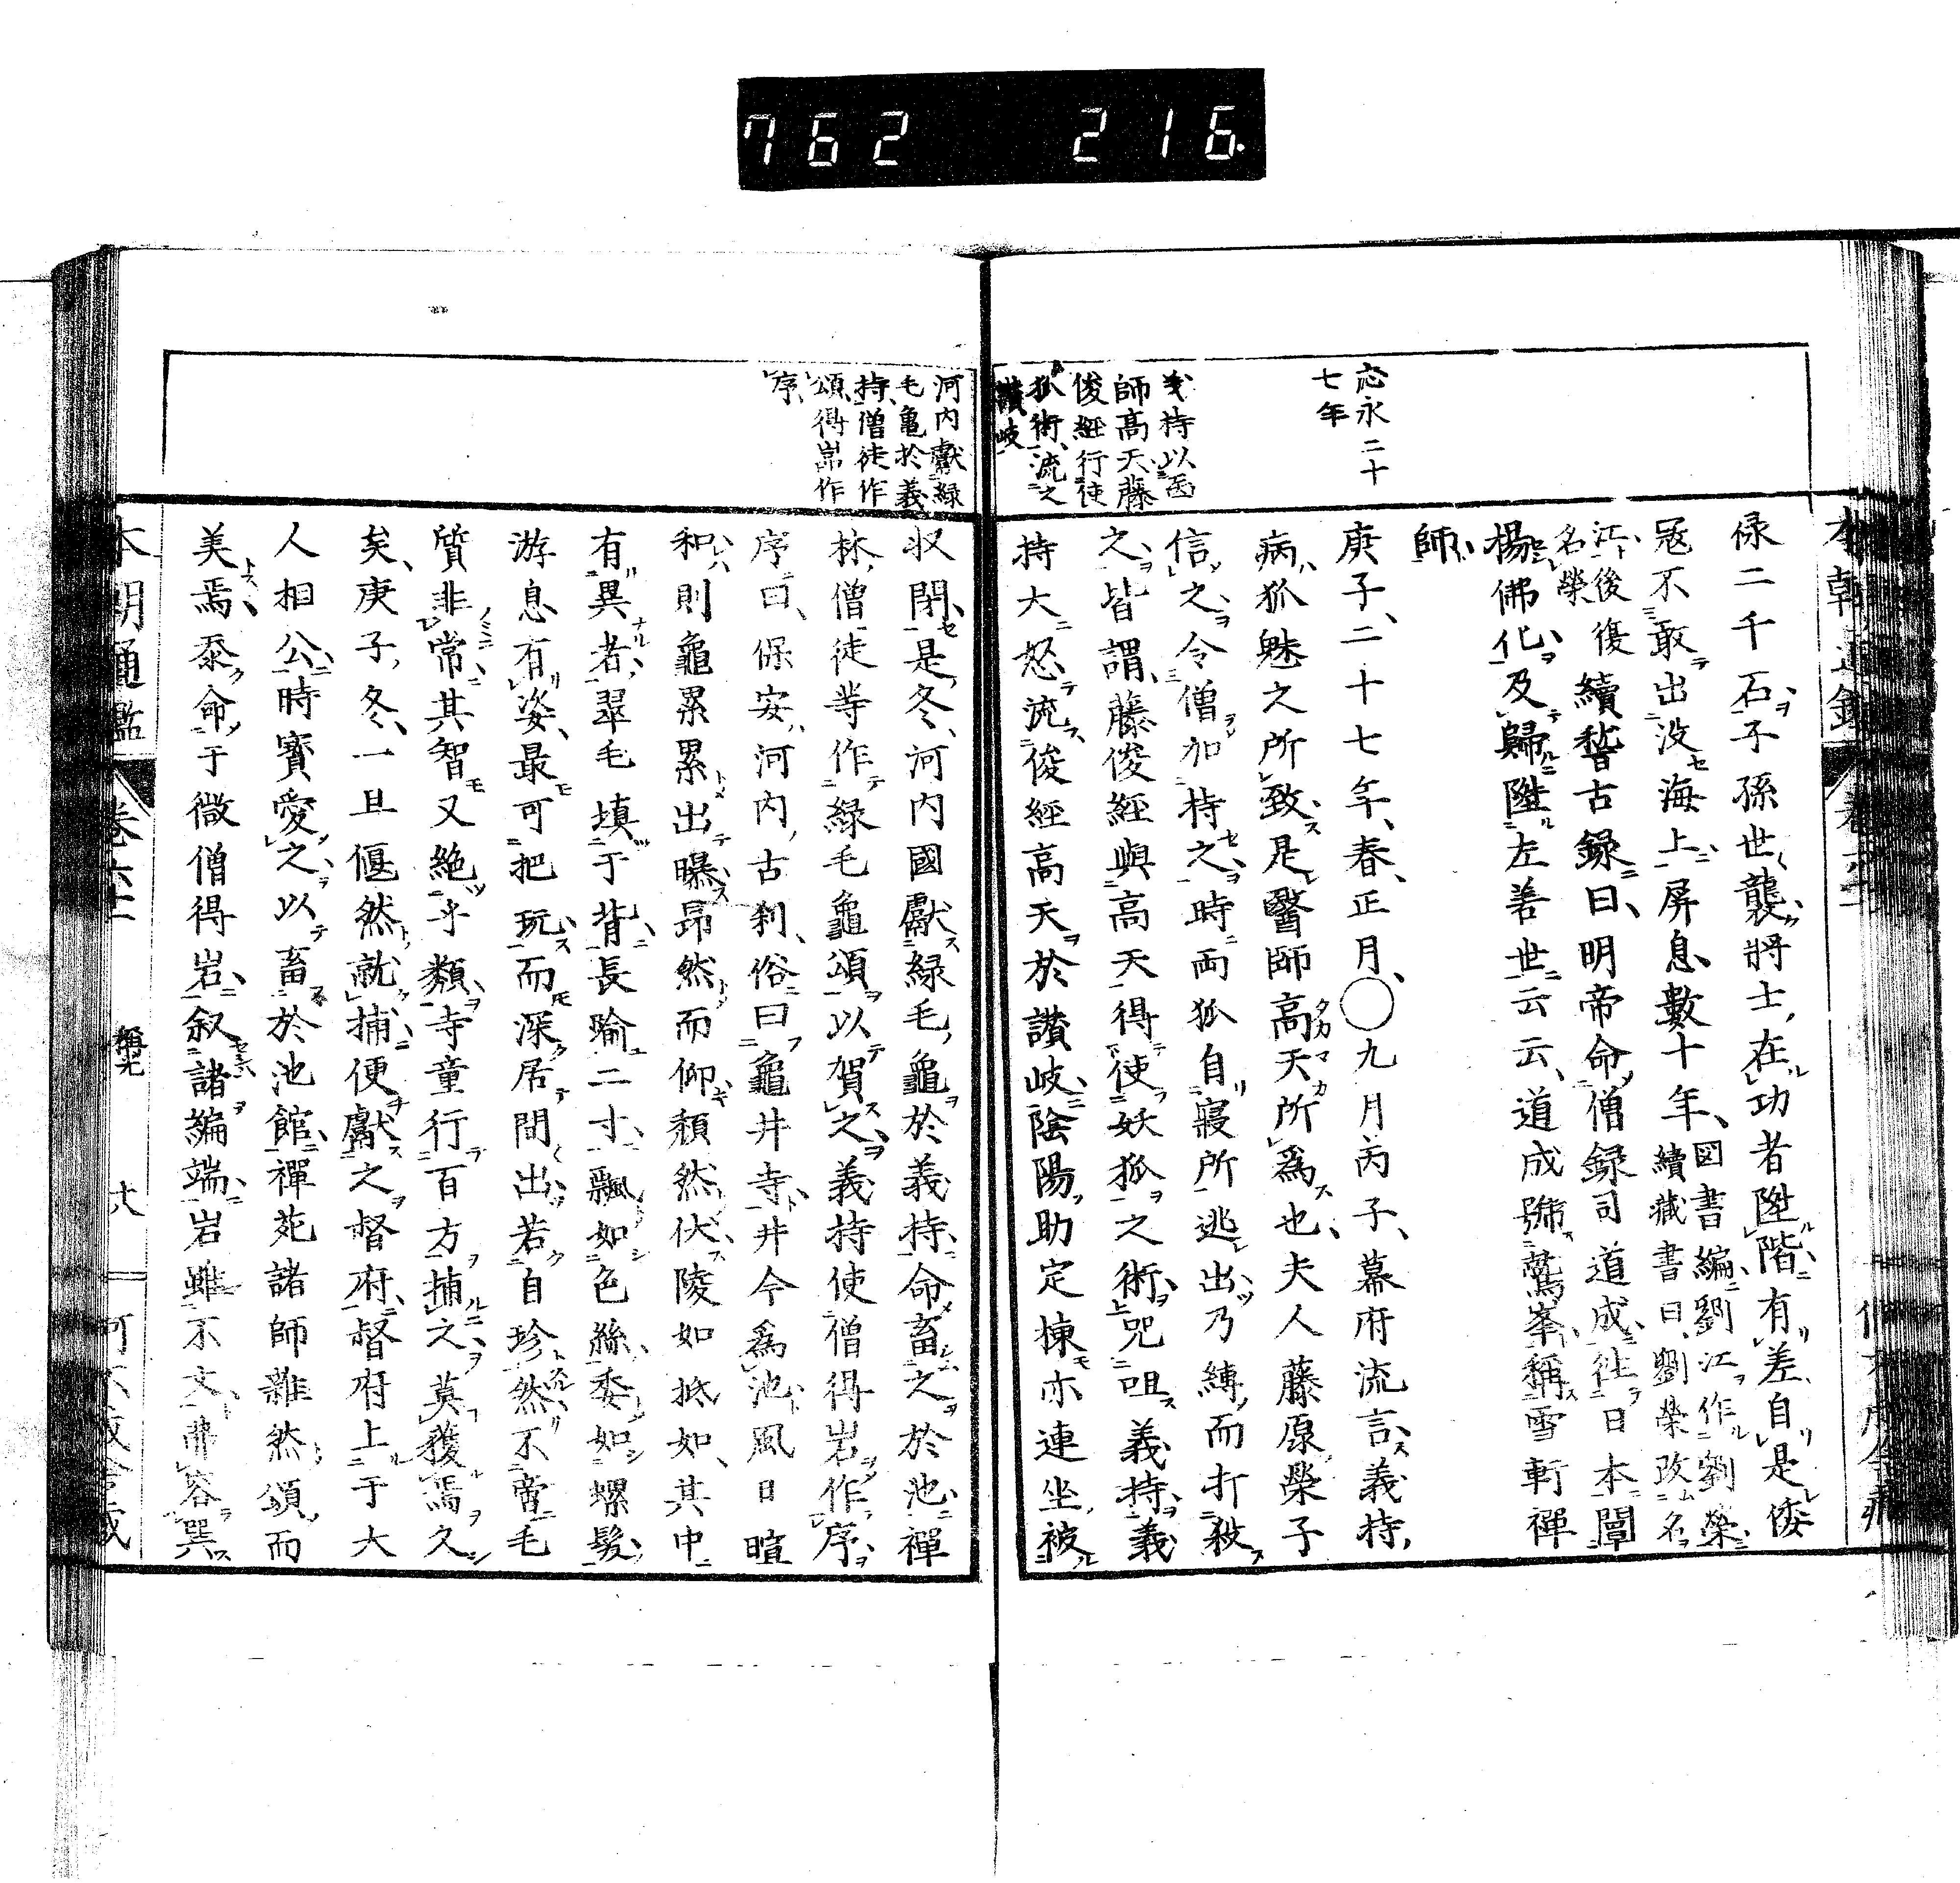 762 216.
応永二十
七年
義持以医
師高天藤
俊経行使
狐術流之
讃岐
禄二千石子孫世襲將士在功者陞階有差自是倭
寇不敢出没海上屏息數十年図書編劉江作劉榮
續藏書曰劉榮改名
江後復
名榮
續稽古録曰明帝命僧録司道成往日本闡
揚佛化及歸陞左善世云云道成號鷲峯稱雪軒禪
師
庚子二十七年春正月〇九月丙子幕府流言義持
病狐魅之所致是醫師高天所爲也夫人藤原榮子
信之令僧加持之時両狐自寢所逃出乃縛而打殺
之皆謂藤俊經與高天得使妖狐之術呪咀義持義
持大怒流俊經高天於讃岐陰陽助定棟亦連坐被
河内獻緑
毛亀於義
持僧徒作
頌得岩作
序
収閉是冬河内國獻緑毛龜於義持命畜之於池禪
林僧徒等作緑毛龜頌以賀之義持使僧得岩作序
序曰保安河内古刹俗曰龜井寺井今爲池風日暄
和則龜累累出曝昂然而仰頽然伏陵如抵如其中
有異者翠毛填于背長踰二寸飄如色絲委如螺髪
游息有姿最可把玩而深居間出若自珍然不啻毛
質非常其智又絶乎類寺童行百方捕之莫獲焉久
矣庚子冬一旦偃然就捕便獻之督府督府上于大
人相公時寶愛之以畜於池館禪苑諸師雜然頌而
美焉黍命于微僧得岩叙諸編端岩雖不文弗容巽
本朝通鑑 卷六十